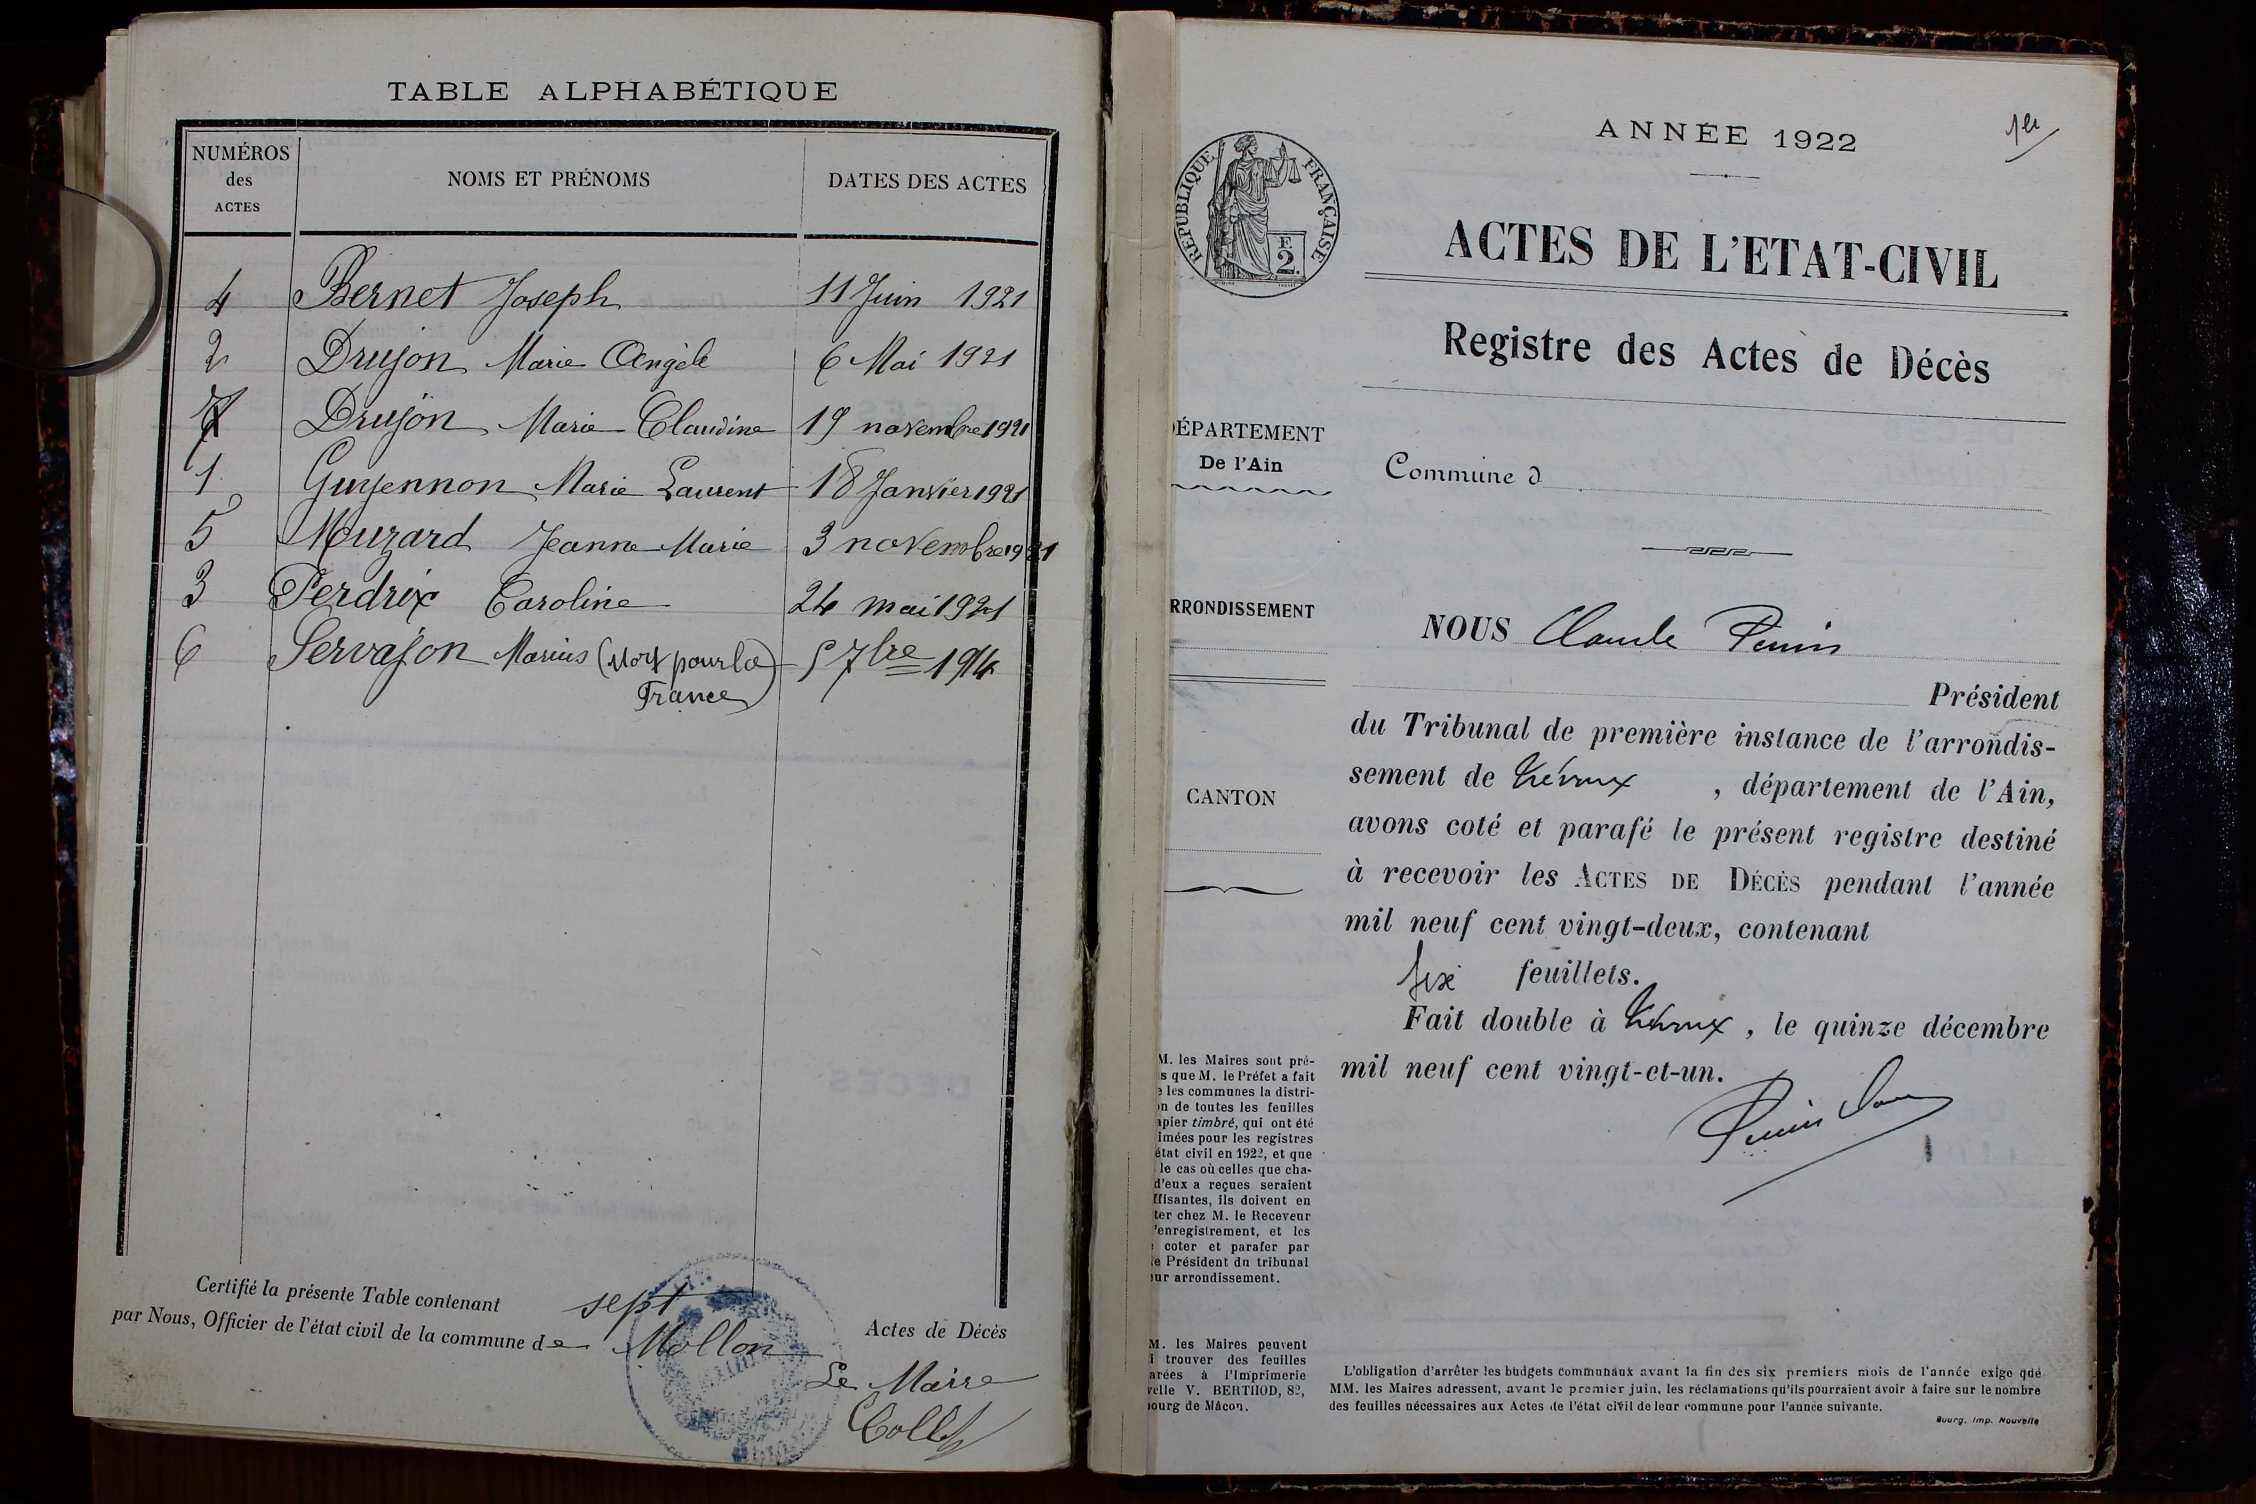 TABLE ALPHABÉTIQUE
NUMÉROS
des
ACTES
NOMS ET PRÉNOMS
DATES DES ACTES
4 Bernet Joseph 11 Juin 1921
2 Drujon Marie Angèle 6 Mai 1921
7 Drujon Marie Claudine 19 novembre 1921
1 Guyennon Marie Laurent 18 Janvier 1921
5 Mouzard Jeanne Marie 3 novembre 1921
3 Perdrix Caroline 24 mai 1921
6 Servajon Marius (Mort pour la 5 7bre 1914
France)
Certifié la présente Table contenant sept Actes de Décès
par Nous, Officier de l'état civil de la commune de Mollon
Le Maire
ANNÉE 1922
1er
RÉPUBLIQUE FRANÇAISE
F.
2.
ACTES DE L'ETAT-CIVIL
Registre des Actes de Décès
ÉPARTEMENT
De l'Ain
Commune d
RRONDISSEMENT
CANTON
NOUS Claude Perrin
Président
du Tribunal de première instance de l'arrondis-
sement de Trévoux , département de l'Ain,
avons coté et parafé le présent registre destiné
à recevoir les ACTES DE DÉCÈS pendant l'année
mil neuf cent vingt-deux, contenant
six feuillets.
Fait double à Trévoux , le quinze décembre
mil neuf cent vingt-et-un.
M. les Maires sont pré-
s que M. le Préfet a fait
e les communes la distri-
on de toutes les feuilles
apier timbré, qui ont été
imées pour les registres
état civil en 1922, et que
le cas où celles que cha-
d'eux a reçues seraient
ffisantes, ils doivent en
ter chez M. le Receveur
'enregistrement, et les
coter et parafer par
e Président du tribunal
eur arrondissement.
M. les Maires peuvent
i trouver des feuilles
arées à l'Imprimerie
velle V. BERTHOD, 82,
bourg de Mâcon.
L'obligation d'arrêter les budgets communaux avant la fin des six premiers mois de l'année exige que
MM. les Maires adressent, avant le premier juin, les réclamations qu'ils pourraient avoir à faire sur le nombre
des feuilles nécessaires aux Actes de l'état civil de leur commune pour l'année suivante.
Bourg, Imp. Nouvelle